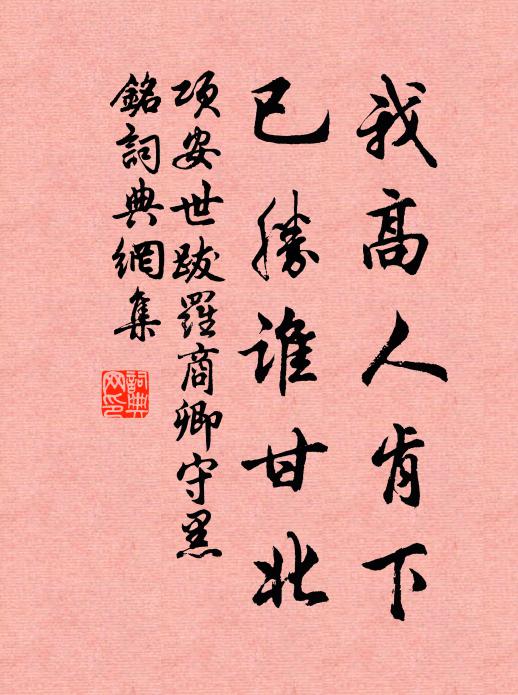 我高人肯下
已勝誰甘北
項安世跋羅商卿守黑
銘詞典網集
詞典
网印